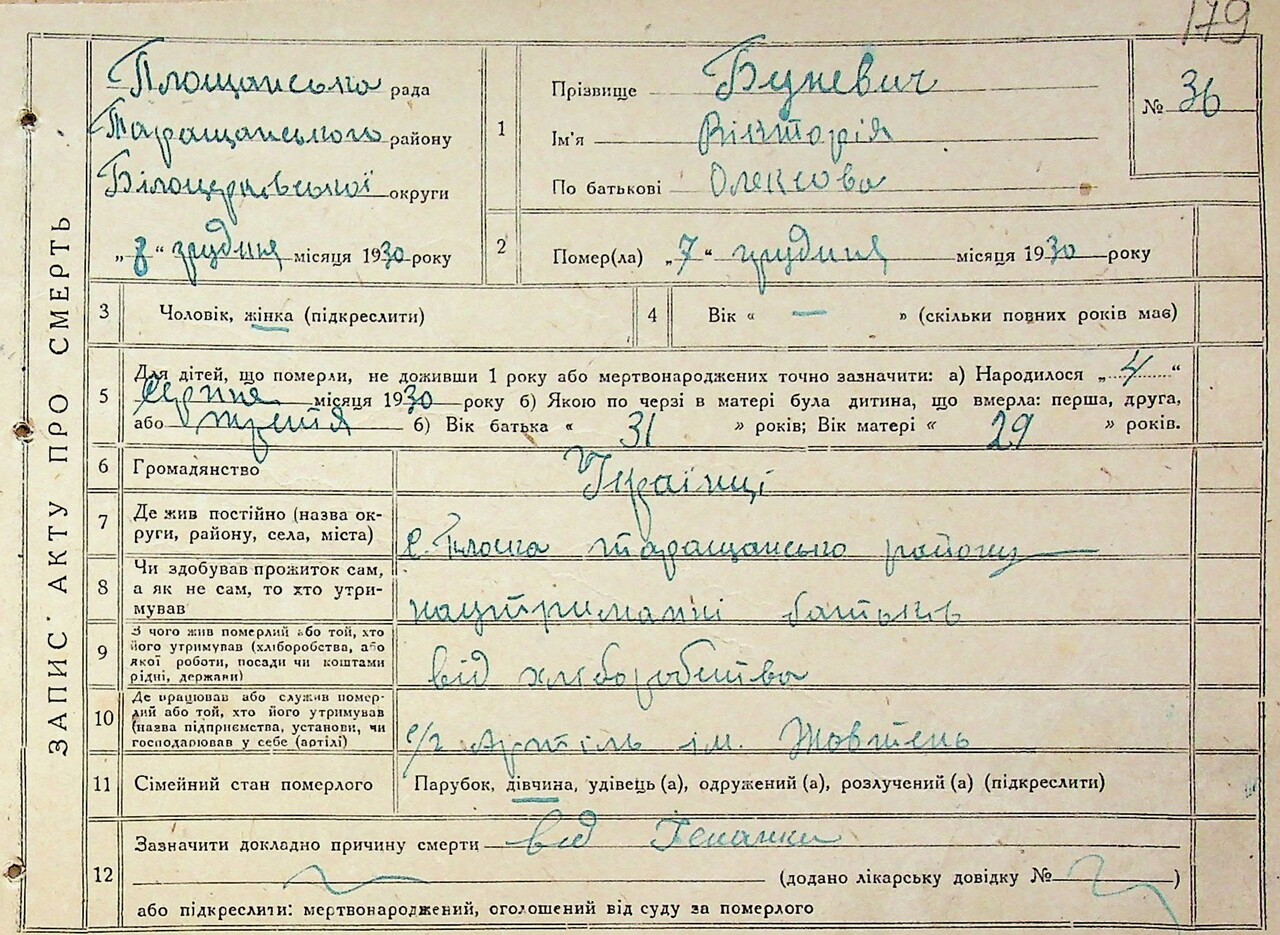 179
ЗАПИС АКТУ ПРО СМЕРТЬ
Площанська рада
Таращанського району
Білоцерківської округи
„8“ грудня місяця 1930 року
1
Прізвище Буневич
Ім'я Вікторія
По батькові Олексова
№ 36
2
Помер(ла) „7“ грудня місяця 1930 року
3
Чоловік, жінка (підкреслити)
4
Вік « — » (скільки повних років має)
5
Для дітей, що померли, не доживши 1 року або мертвонароджених точно зазначити: а) Народилося „4“
серпня місяця 1930 року б) Якою по черзі в матері була дитина, що вмерла: перша, друга,
або третя б) Вік батька « 31 » років; Вік матері « 29 » років.
6
Громадянство
Українці
7
Де жив постійно (назва ок-
руги, району, села, міста)
с. Плоска таращансько району
8
Чи здобував прожиток сам,
а як не сам, то хто утри-
мував
наутриманні батьків
9
З чого жив померлий або той, хто
його утримував (хліборобства, або
якої роботи, посади чи коштами
рідні, держави)
від хліборобства
10
Де працював або служив помер-
лий або той, хто його утримував
(назва підприємства, установи, чи
господарював у себе (артілі)
с/г Артіль ім. Жовтень
11
Сімейний стан померлого
Парубок, дівчина, удівець (а), одружений (а), розлучений (а) (підкреслити)
12
Зазначити докладно причину смерти від
(додано лікарську довідку № )
або підкреслити: мертвонароджений, оголошений від суду за померлого